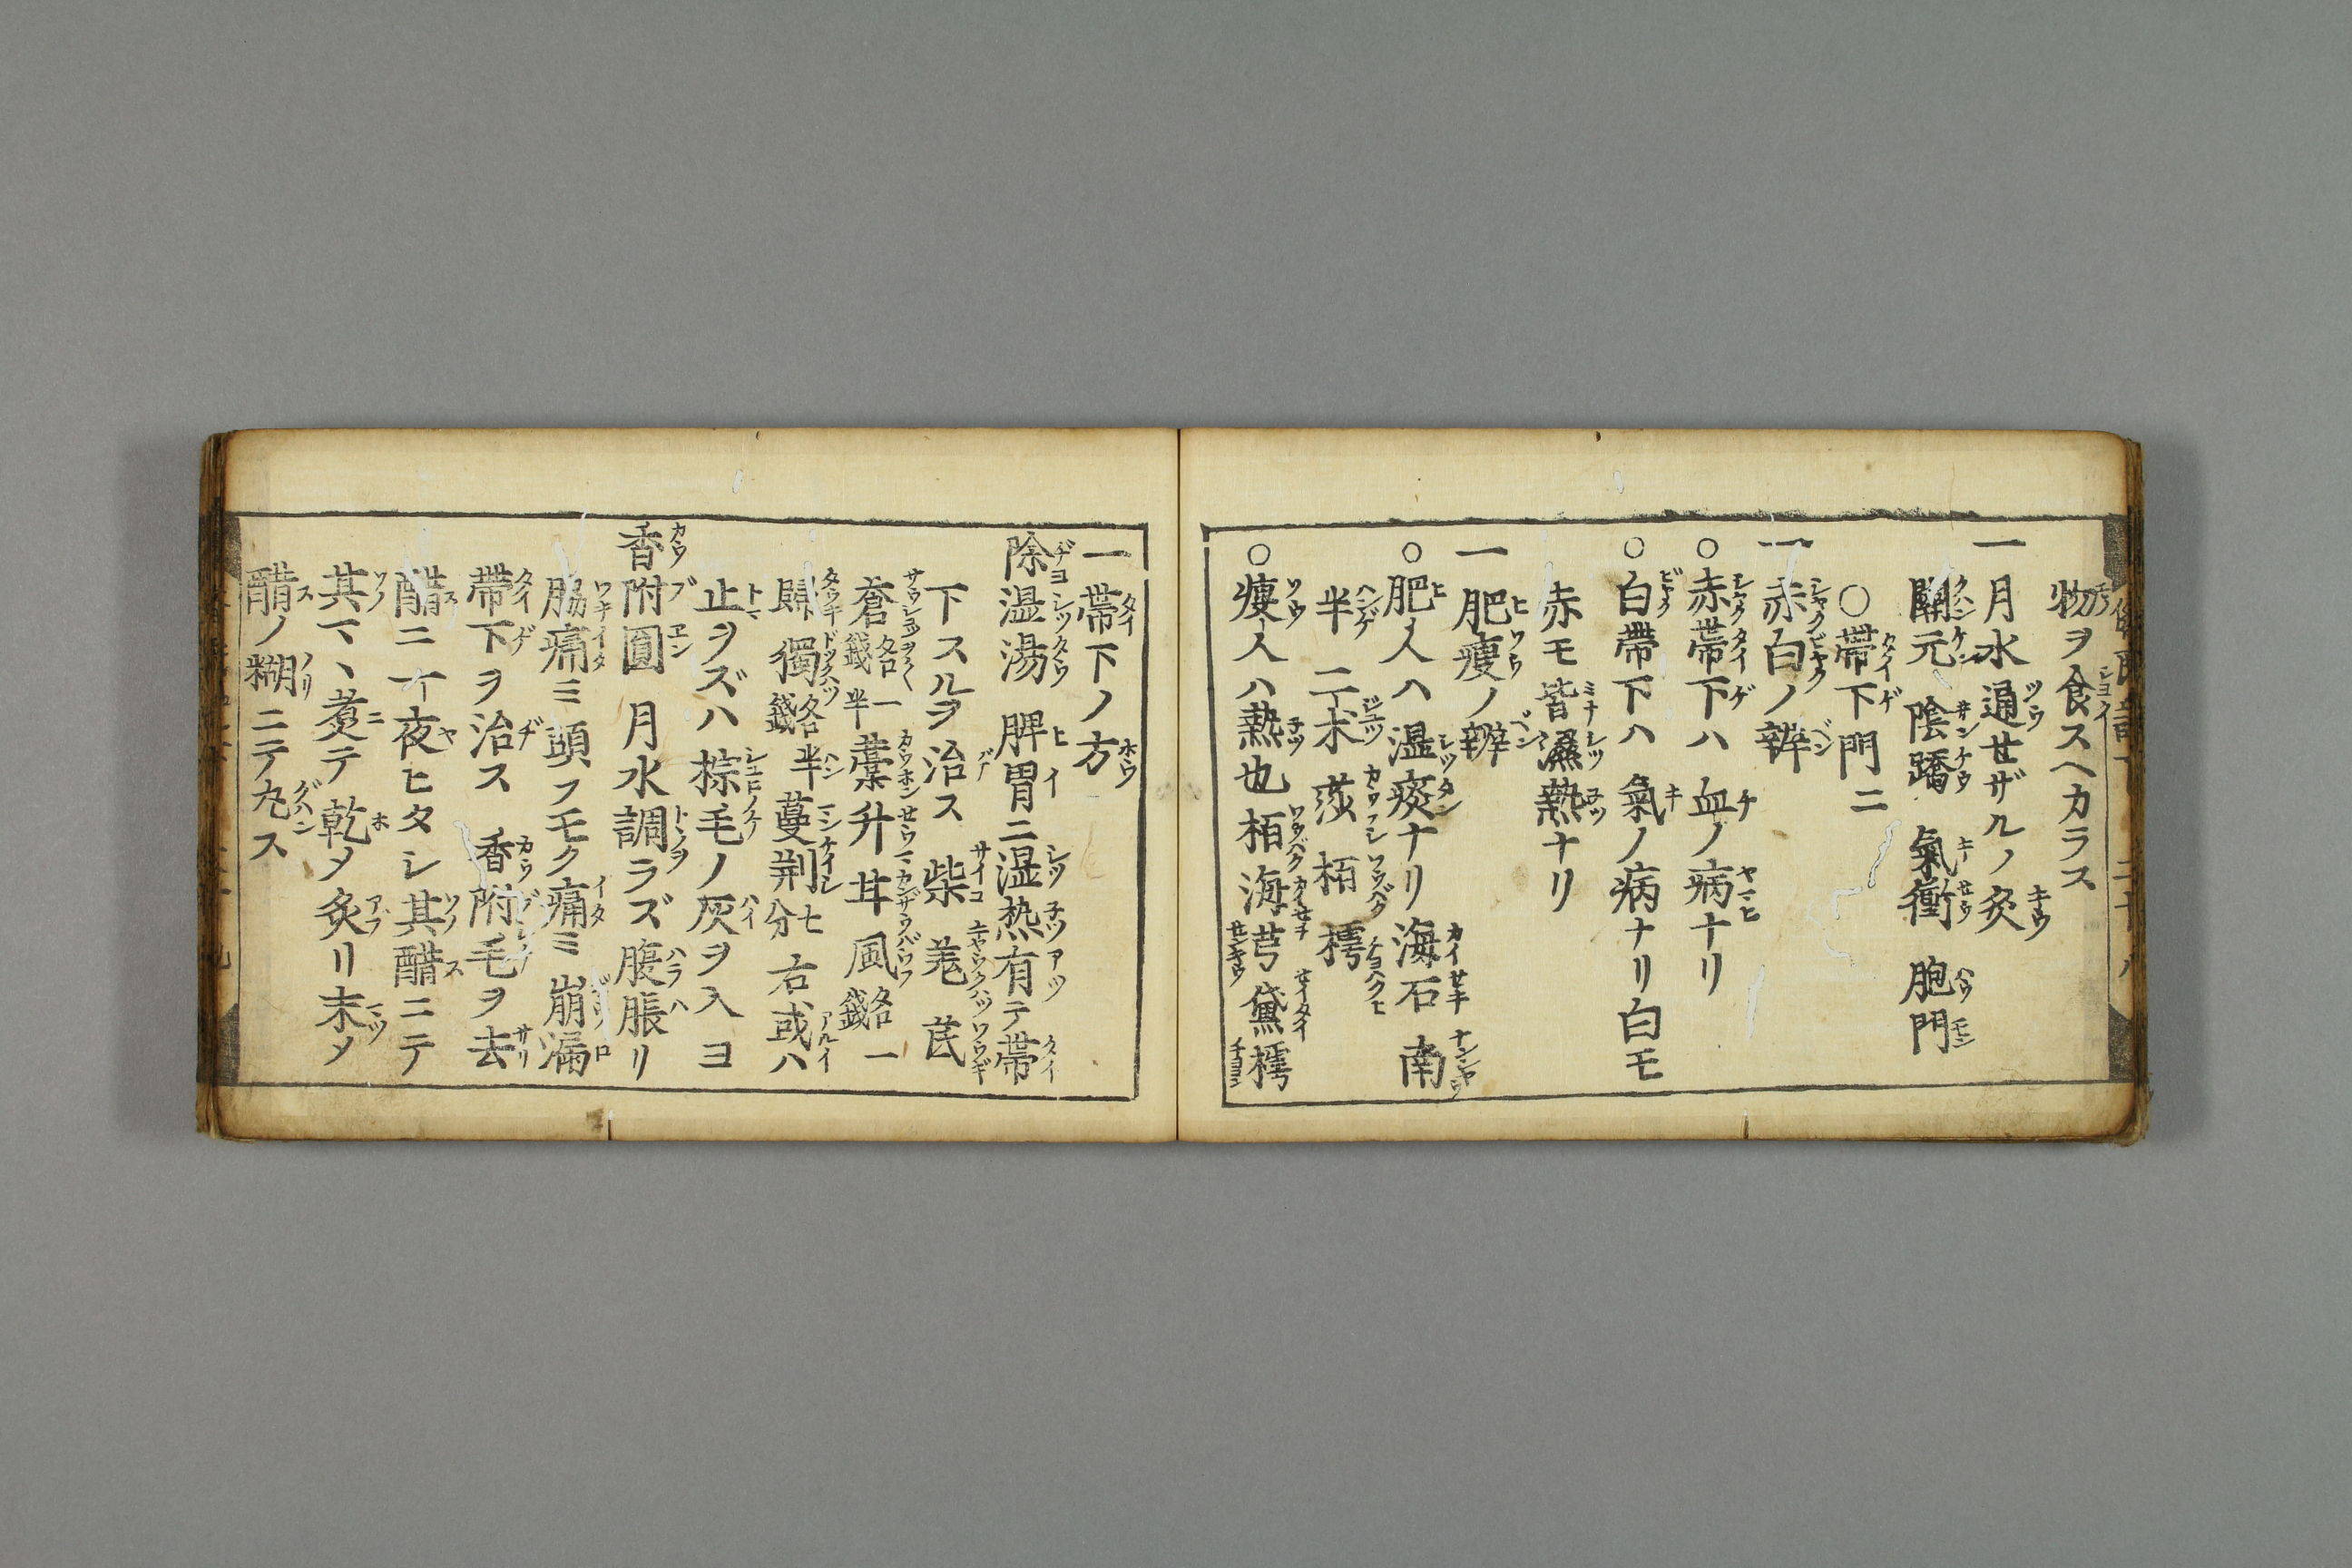 物ヲ食スヘカラス
一月水通せザルノ灸
關元 陰蹻 氣衝 胞門
○帶下門二
一赤白ノ辨
○赤帶下ハ 血ノ病ナリ
○白帶下ハ 氣ノ病ナリ白モ
赤モ皆濕熱ナリ
一肥瘦ノ辨
○肥人ハ湿痰ナリ 海石 南
半 二朮 莎 栢 樗
○瘦人ハ熱也 栢 海 芎 黛 樗
一帶下ノ方
除湿湯 脾胃ニ湿热有テ帶
下スルヲ治ス 柴 羗 芪
蒼各一錢半 藁 升 甘 風各一錢
歸 獨各半錢 蔓荆七分 右或ハ
止ヲズハ棕毛ノ灰ヲ入ヨ
香附圓 月水調ラズ腹脹リ
脇痛ミ頭フモク痛ミ 崩漏
帶下ヲ治ス 香附毛ヲ去
醋ニ一夜ヒタシ其醋ニテ
其マヽ煑テ乾メ炙リ末メ
醋ノ糊ニテ丸ス